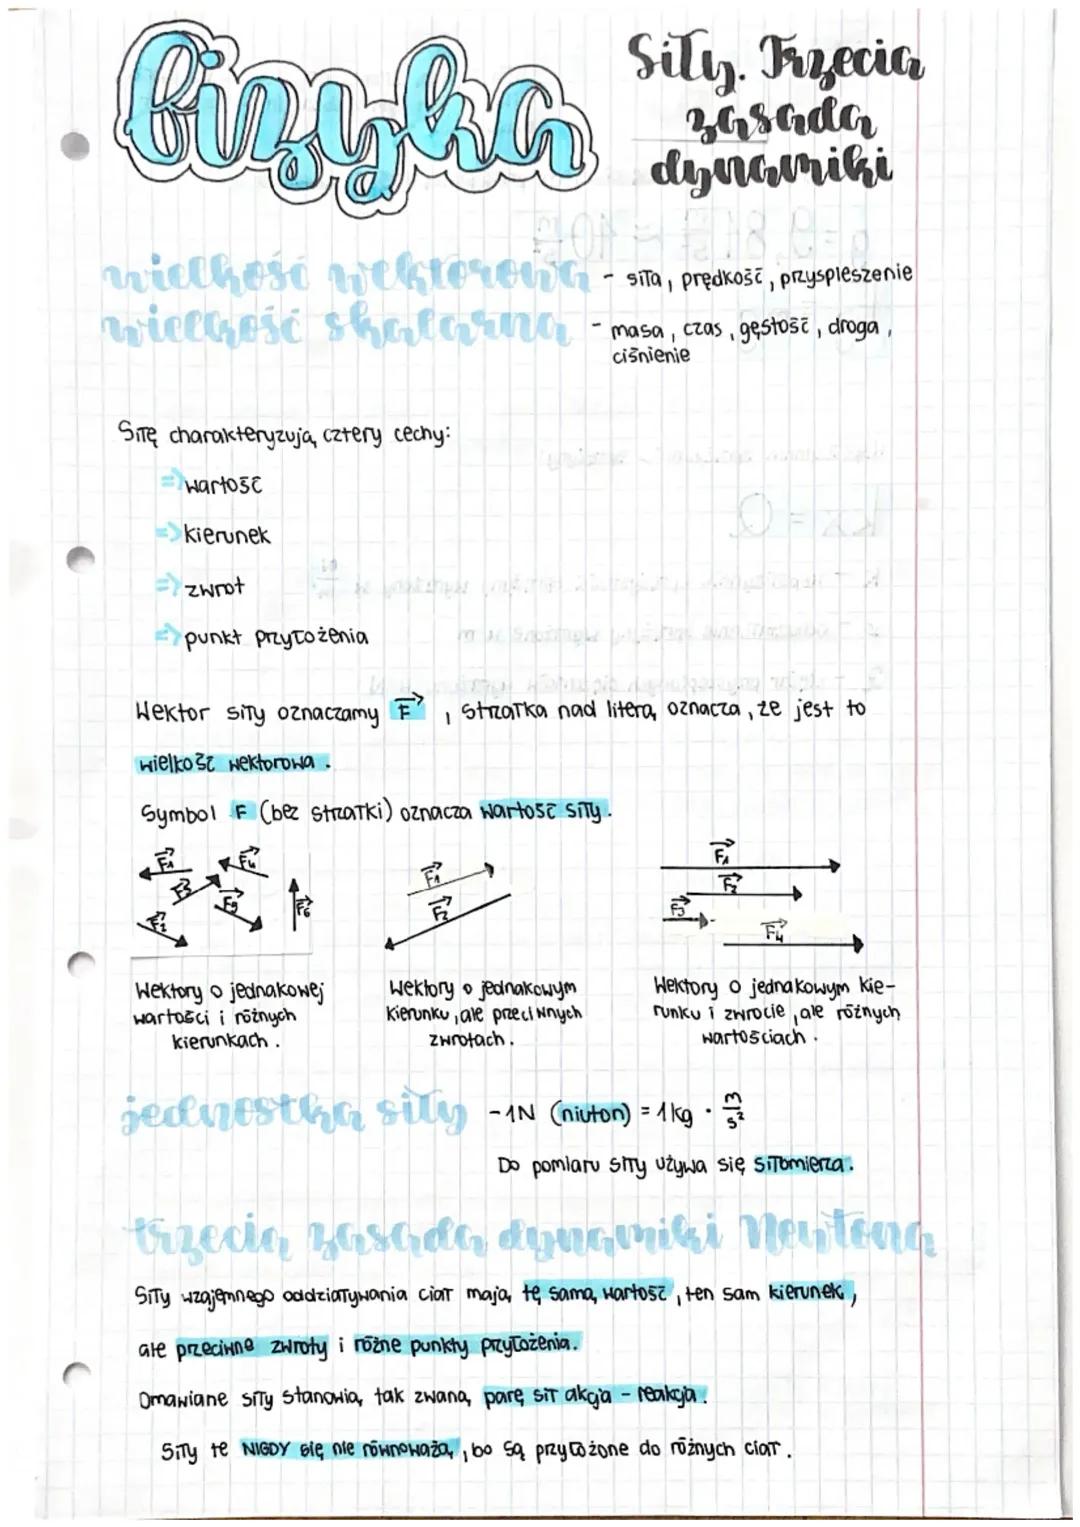 fizyka
Siły. Trzecia
zasada
dynamiki
wielkość wektorowa - siła, prędkość, przyspieszenie
wielkość skalarna - masa, czas, gęstość, droga,
ciśnienie
Siłę charakteryzują cztery cechy:
=> wartość
=> kierunek
=> zwrot
=> punkt przyłożenia
Wektor siły oznaczamy F→, strzałka nad literą oznacza, że jest to
wielkość wektorowa.
Symbol F (bez strzałki) oznacza wartość siły.
F1 F4
F3 F5 F6
F2
F1
F2
F1
F2
F3
F4
Wektory o jednakowej
wartości i różnych
kierunkach.
Wektory o jednakowym
kierunku, ale przeciwnych
zwrotach.
Wektory o jednakowym kie-
runku i zwrocie, ale różnych
wartościach.
jednostka siły - 1N (niuton) = 1kg · m/s²
Do pomiaru siły używa się siłomierza.
trzecia zasada dynamiki Newtona
Siły wzajemnego oddziaływania ciał mają tę samą wartość, ten sam kierunek,
ale przeciwne zwroty i różne punkty przyłożenia.
Omawiane siły stanowią tak zwaną parę sił akcja - reakcja.
Siły te NIGDY się nie równoważą, bo są przyłożone do różnych ciał.